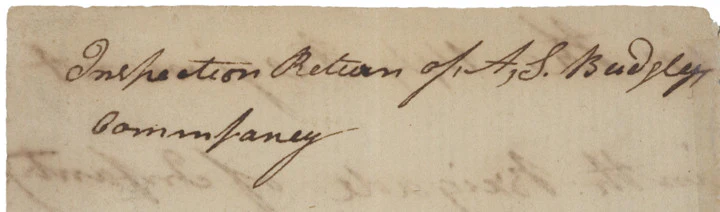 Inspection Return of A, S. Budgley
Commpaney